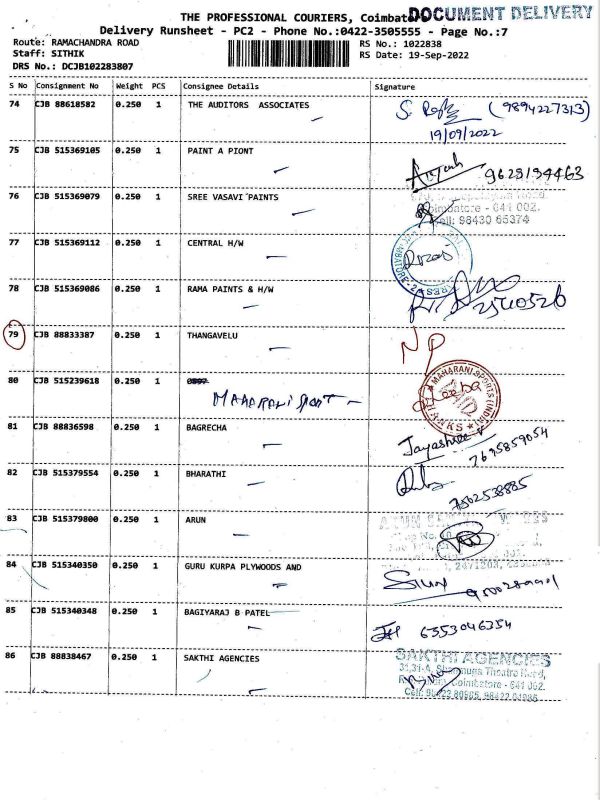 THE PROFESSIONAL COURIERS, Coimbat
DOCUMENT DELIVERY
Delivery Runsheet - PC2 - Phone No.:0422-3505555 - Page No.:7
Route: RAMACHANDRA ROAD RS No.: 1022838
Staff: SITHIK RS Date: 19-Sep-2022
DRS No.: DCJB102283807
S No Consignment No Weight PCS Consignee Details Signature
74 CJB 88618582 0.250 1 THE AUDITORS ASSOCIATES (9894227313)
19/09/2022
75 CJB 515369105 0.250 1 PAINT A PIONT 9629194463
76 CJB 515369079 0.250 1 SREE VASAVI PAINTS
Coimbatore - 641 002.
Cell: 98430 65374
77 CJB 515369112 0.250 1 CENTRAL H/W
78 CJB 515369086 0.250 1 RAMA PAINTS & H/W
79 CJB 88833387 0.250 1 THANGAVELU NP
80 CJB 515239618 0.250 1
MAHARANI SPORT
MAHARANI SPORTS (INDIA)
THANKS
81 CJB 88836598 0.250 1 BAGRECHA Jayashree
7695859054
82 CJB 515379554 0.250 1 BHARATHI
7502538885
83 CJB 515379800 0.250 1 ARUN
84 CJB 515340350 0.250 1 GURU KURPA PLYWOODS AND
85 CJB 515340348 0.250 1 BAGIYARAJ B PATEL 6353046354
86 CJB 88838467 0.250 1 SAKTHI AGENCIES
SAKTHI AGENCIES
31,31-A, Shanmuga Theatre Road,
Coimbatore - 641 002.